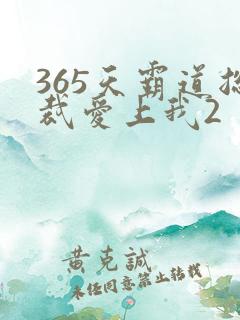 365天霸道总
裁爱上我2
黄克誠
未经同意禁止转载